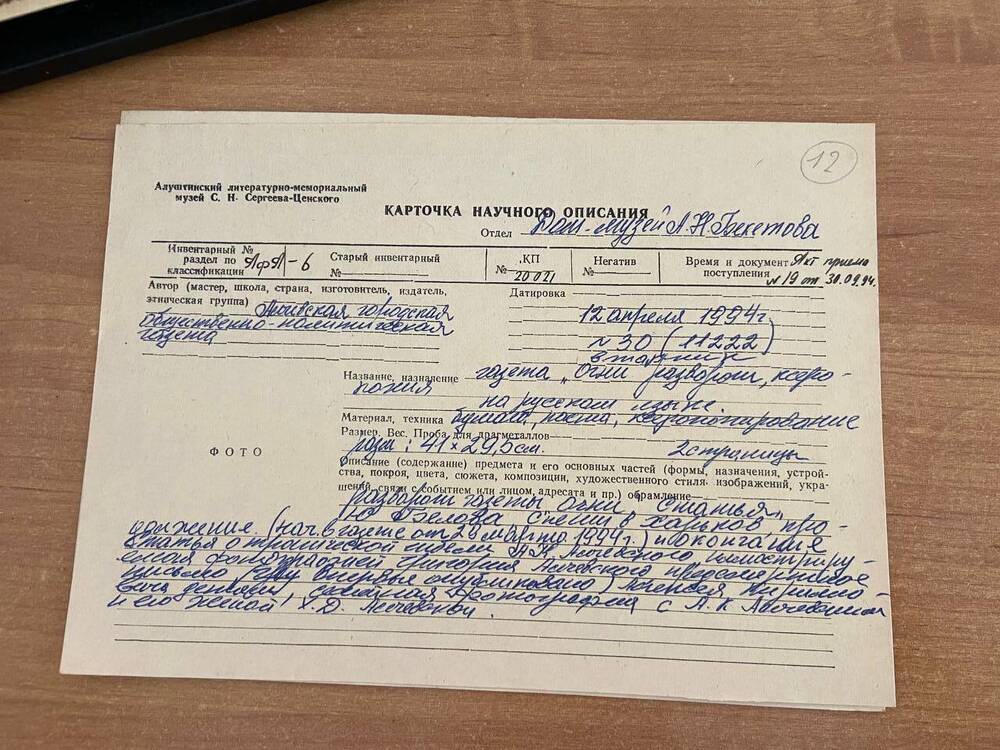 12
Алуштинский литературно-мемориальный
музей С. Н. Сергеева-Ценского
КАРТОЧКА НАУЧНОГО ОПИСАНИЯ
Отдел Дом-музей А.Н. Бекетова
Инвентарный №
раздел по
классификации -6
Старый инвентарный
№
КП
№ 20021
Негатив
№
Время и документ Акт приема
поступления №19 от 30.09.94.
Автор (мастер, школа, страна, изготовитель, издатель,
этническая группа) городская
общественно-политическая
газета
Датировка
12 апреля 1994г.
№30 (11222)
вторник
Название, назначение газета „Огни разворот, ксеро-
копия
на русском языке.
Материал, техника бумага, краска, ксерокопирование
Размер. Вес. Проба для драгметаллов
разм: 41×29,5см. 2 страницы
ФОТО
Описание (содержание) предмета и его основных частей (формы, назначения, устрой-
ства, покроя, цвета, сюжета, композиции, художественного стиля изображений, укра-
шений, связи с событием или лицом, адресата и пр.) обрамление
разворот газеты Огни статья
Ю. Белова Спеши в Харьков про-
должение (нач. в газете от марта 1994г.) и окончания
статья о трагической гибели А.К. Алчевского
фотографией Григория Алчевского предсмертное
письмо впервые опубликовано Алексея Кирилло-
вича детьми, фотография с А.К Алчевским
и его женой Х.Д. Алчевской.